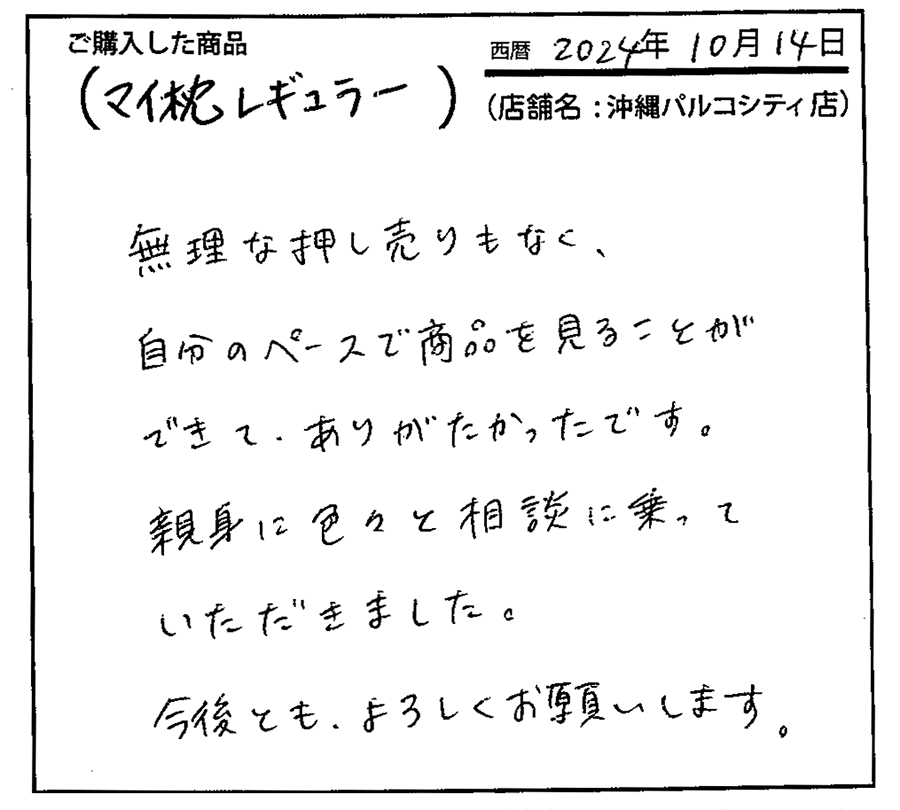 ご購入した商品
西暦 2024年 10月 14日
(マイ枕レギュラー )
(店舗名:沖縄パルコシティ店)
無理な押し売りもなく、
自分のペースで商品を見ることが
できて、ありがたかったです。
親身に色々と相談に乗って
いただきました。
今後とも、よろしくお願いします。